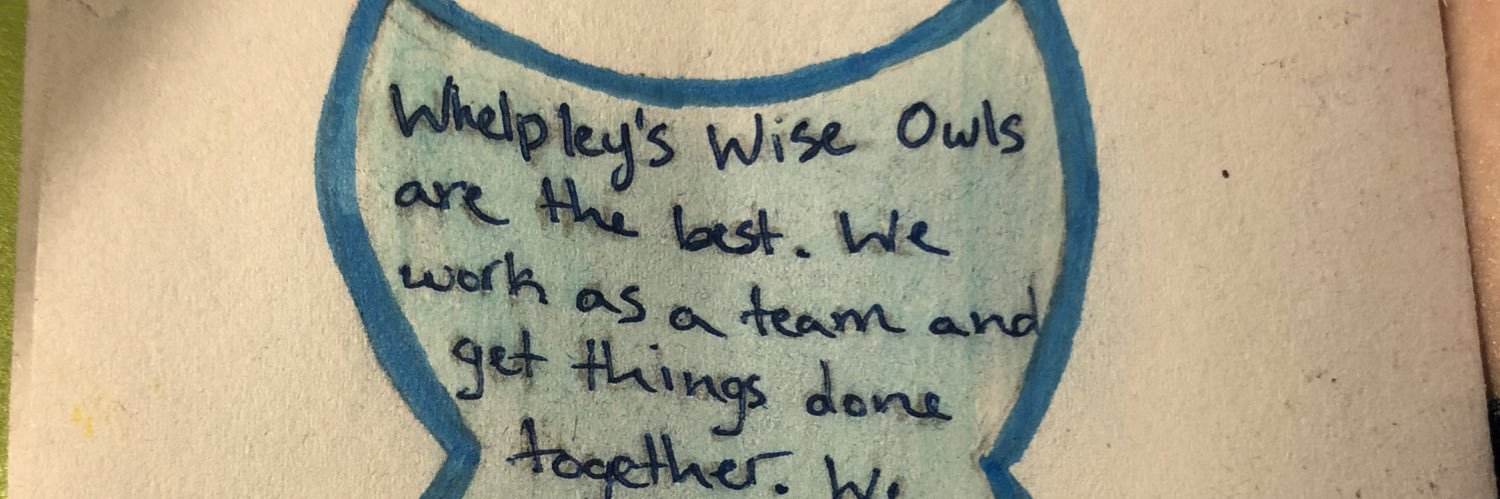 Whelpley's Wise Owls
are the best. We
work as a team and
get things done
together. We